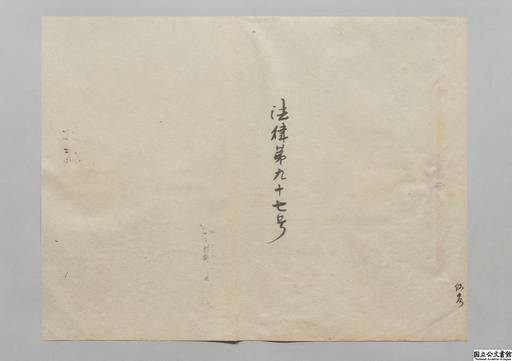 法律第九十七号
国立公文書館
National Archives of Japan